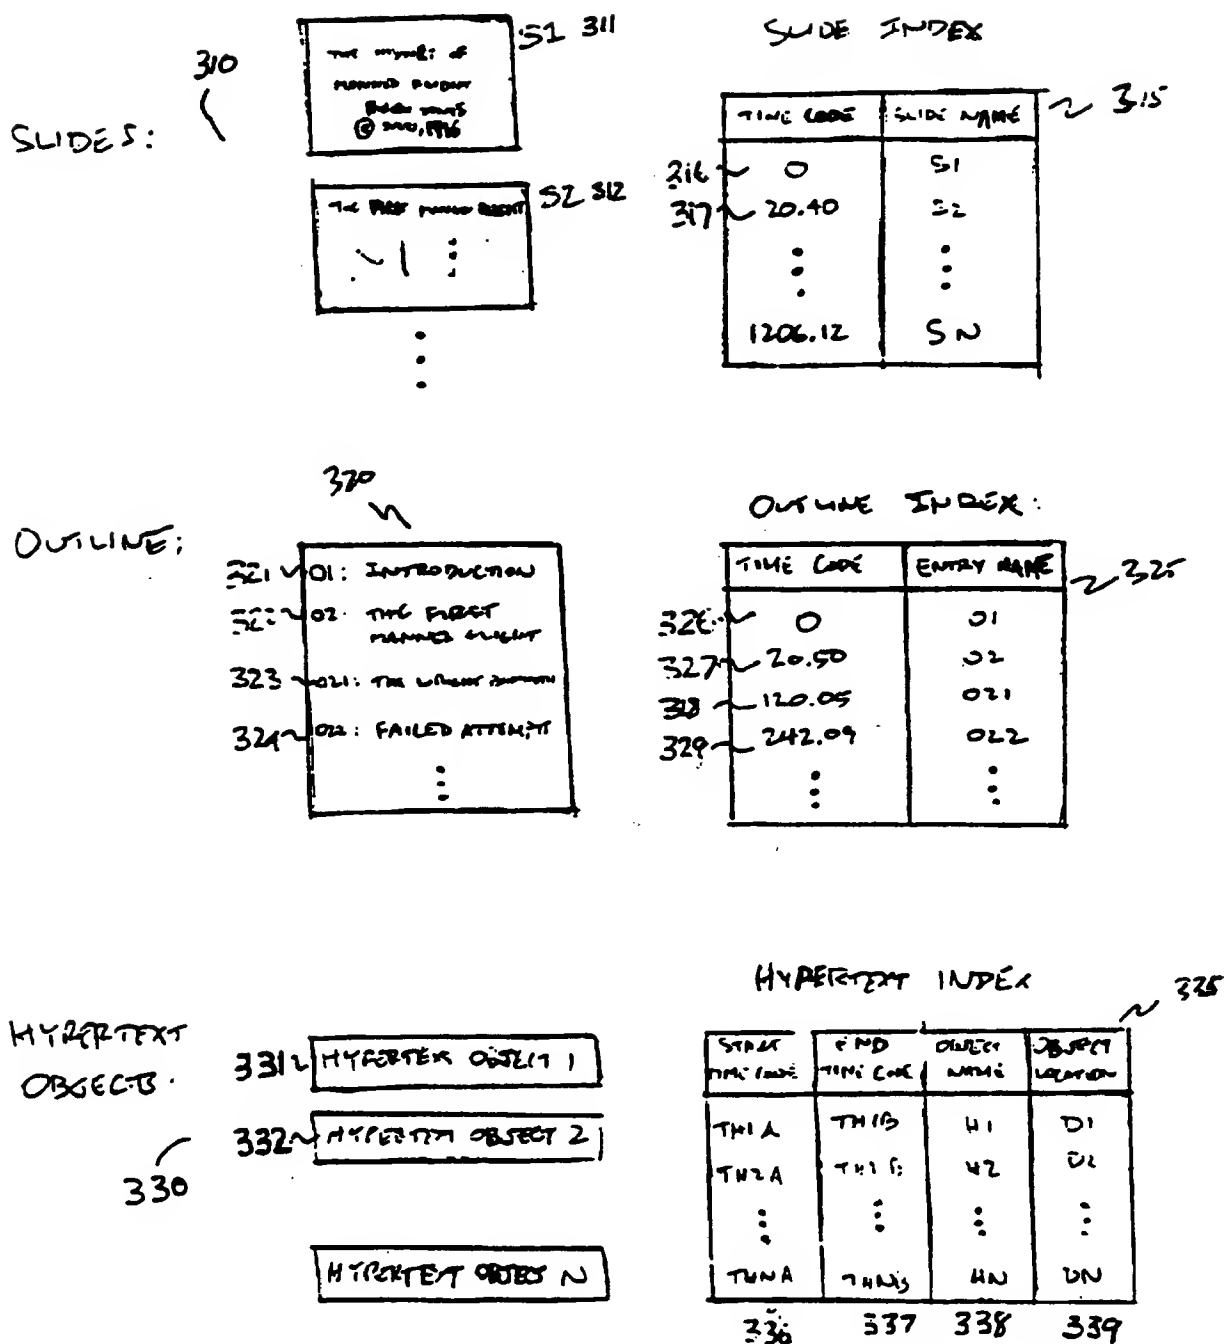 SLIDES:
310
S1 311
THE HISTORY OF
MANNED FLIGHT
1996
S2 312
THE FIRST MANNED FLIGHT
SLIDE INDEX
315
TIME CODE SLIDE NAME
316 0 S1
317 20.40 S2
1206.12 SN
OUTLINE:
320
321 01: INTRODUCTION
322 02: THE FIRST
MANNED FLIGHT
323 021: THE WRIGHT
324 022: FAILED ATTEMPT
OUTLINE INDEX:
325
TIME CODE ENTRY NAME
326 0 01
327 20.50 02
328 120.05 021
329 242.09 022
HYPERTEXT
OBJECTS:
330
331 HYPERTEXT OBJECT 1
332 HYPERTEXT OBJECT 2
HYPERTEXT OBJECT N
HYPERTEXT INDEX
335
START TIME CODE END TIME CODE OBJECT NAME OBJECT LOCATION
TH1A TH1B H1 D1
TH2A TH2B H2 D2
THNA THNB HN DN
336 337 338 339